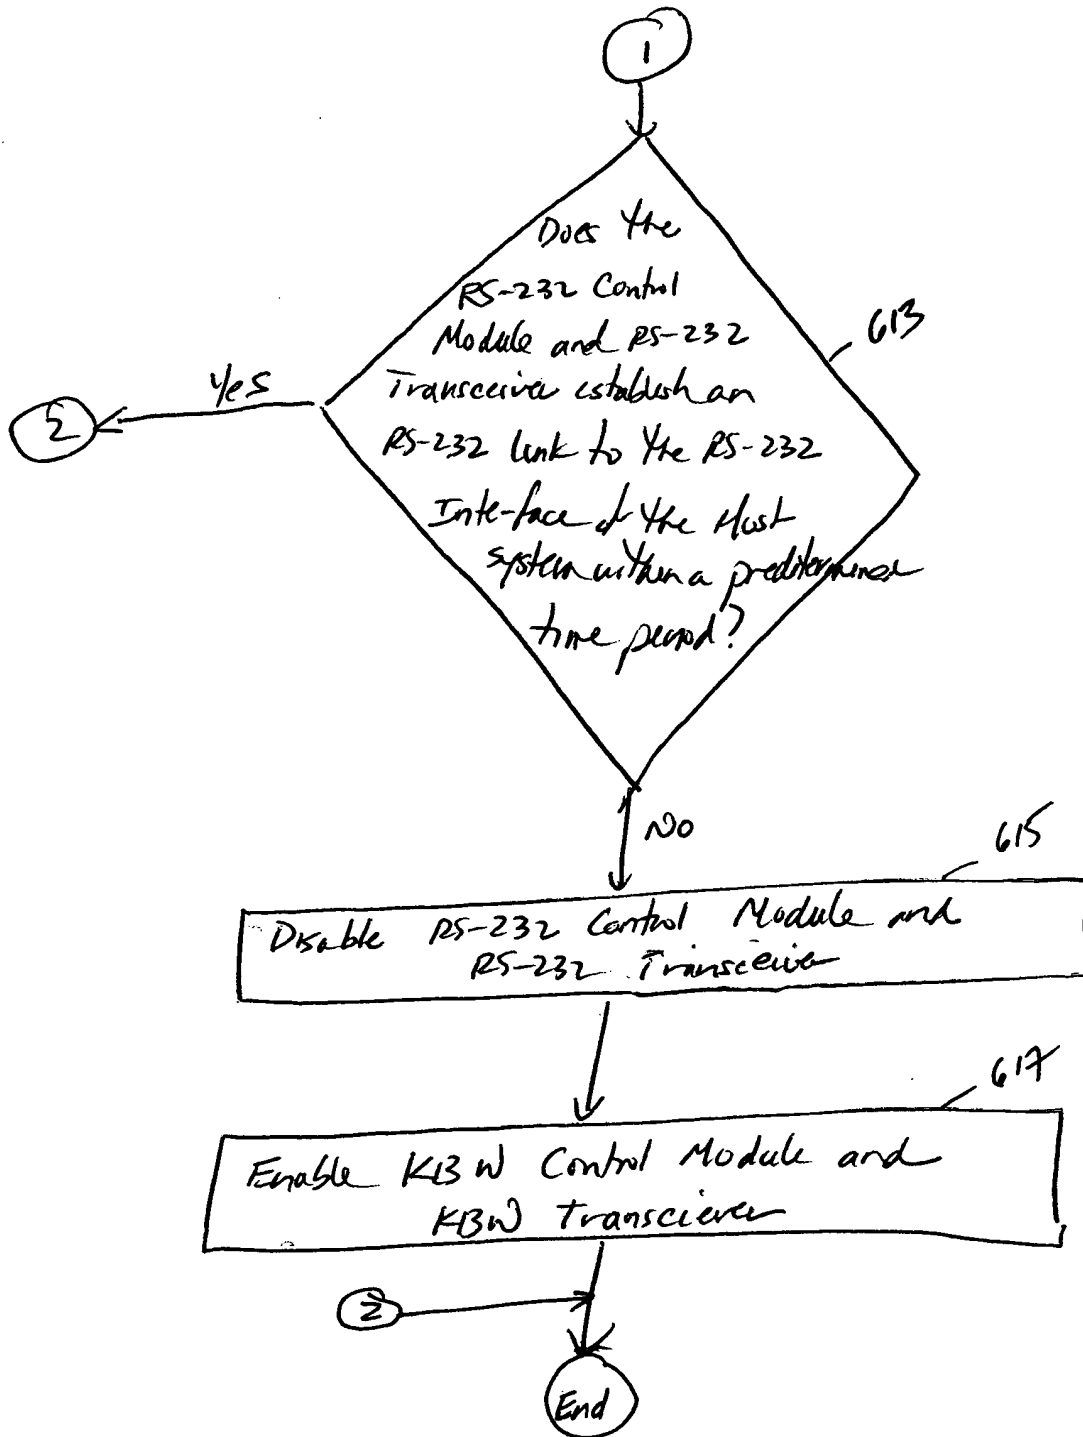 1
Does the
RS-232 Control
Module and RS-232
Transceiver establish an
RS-232 link to the RS-232
Interface of the Host
system within a predetermined
time period?
613
Yes
2
No
615
Disable RS-232 Control Module and
RS-232 Transceiver
617
Enable KBW Control Module and
KBW Transciever
2
End